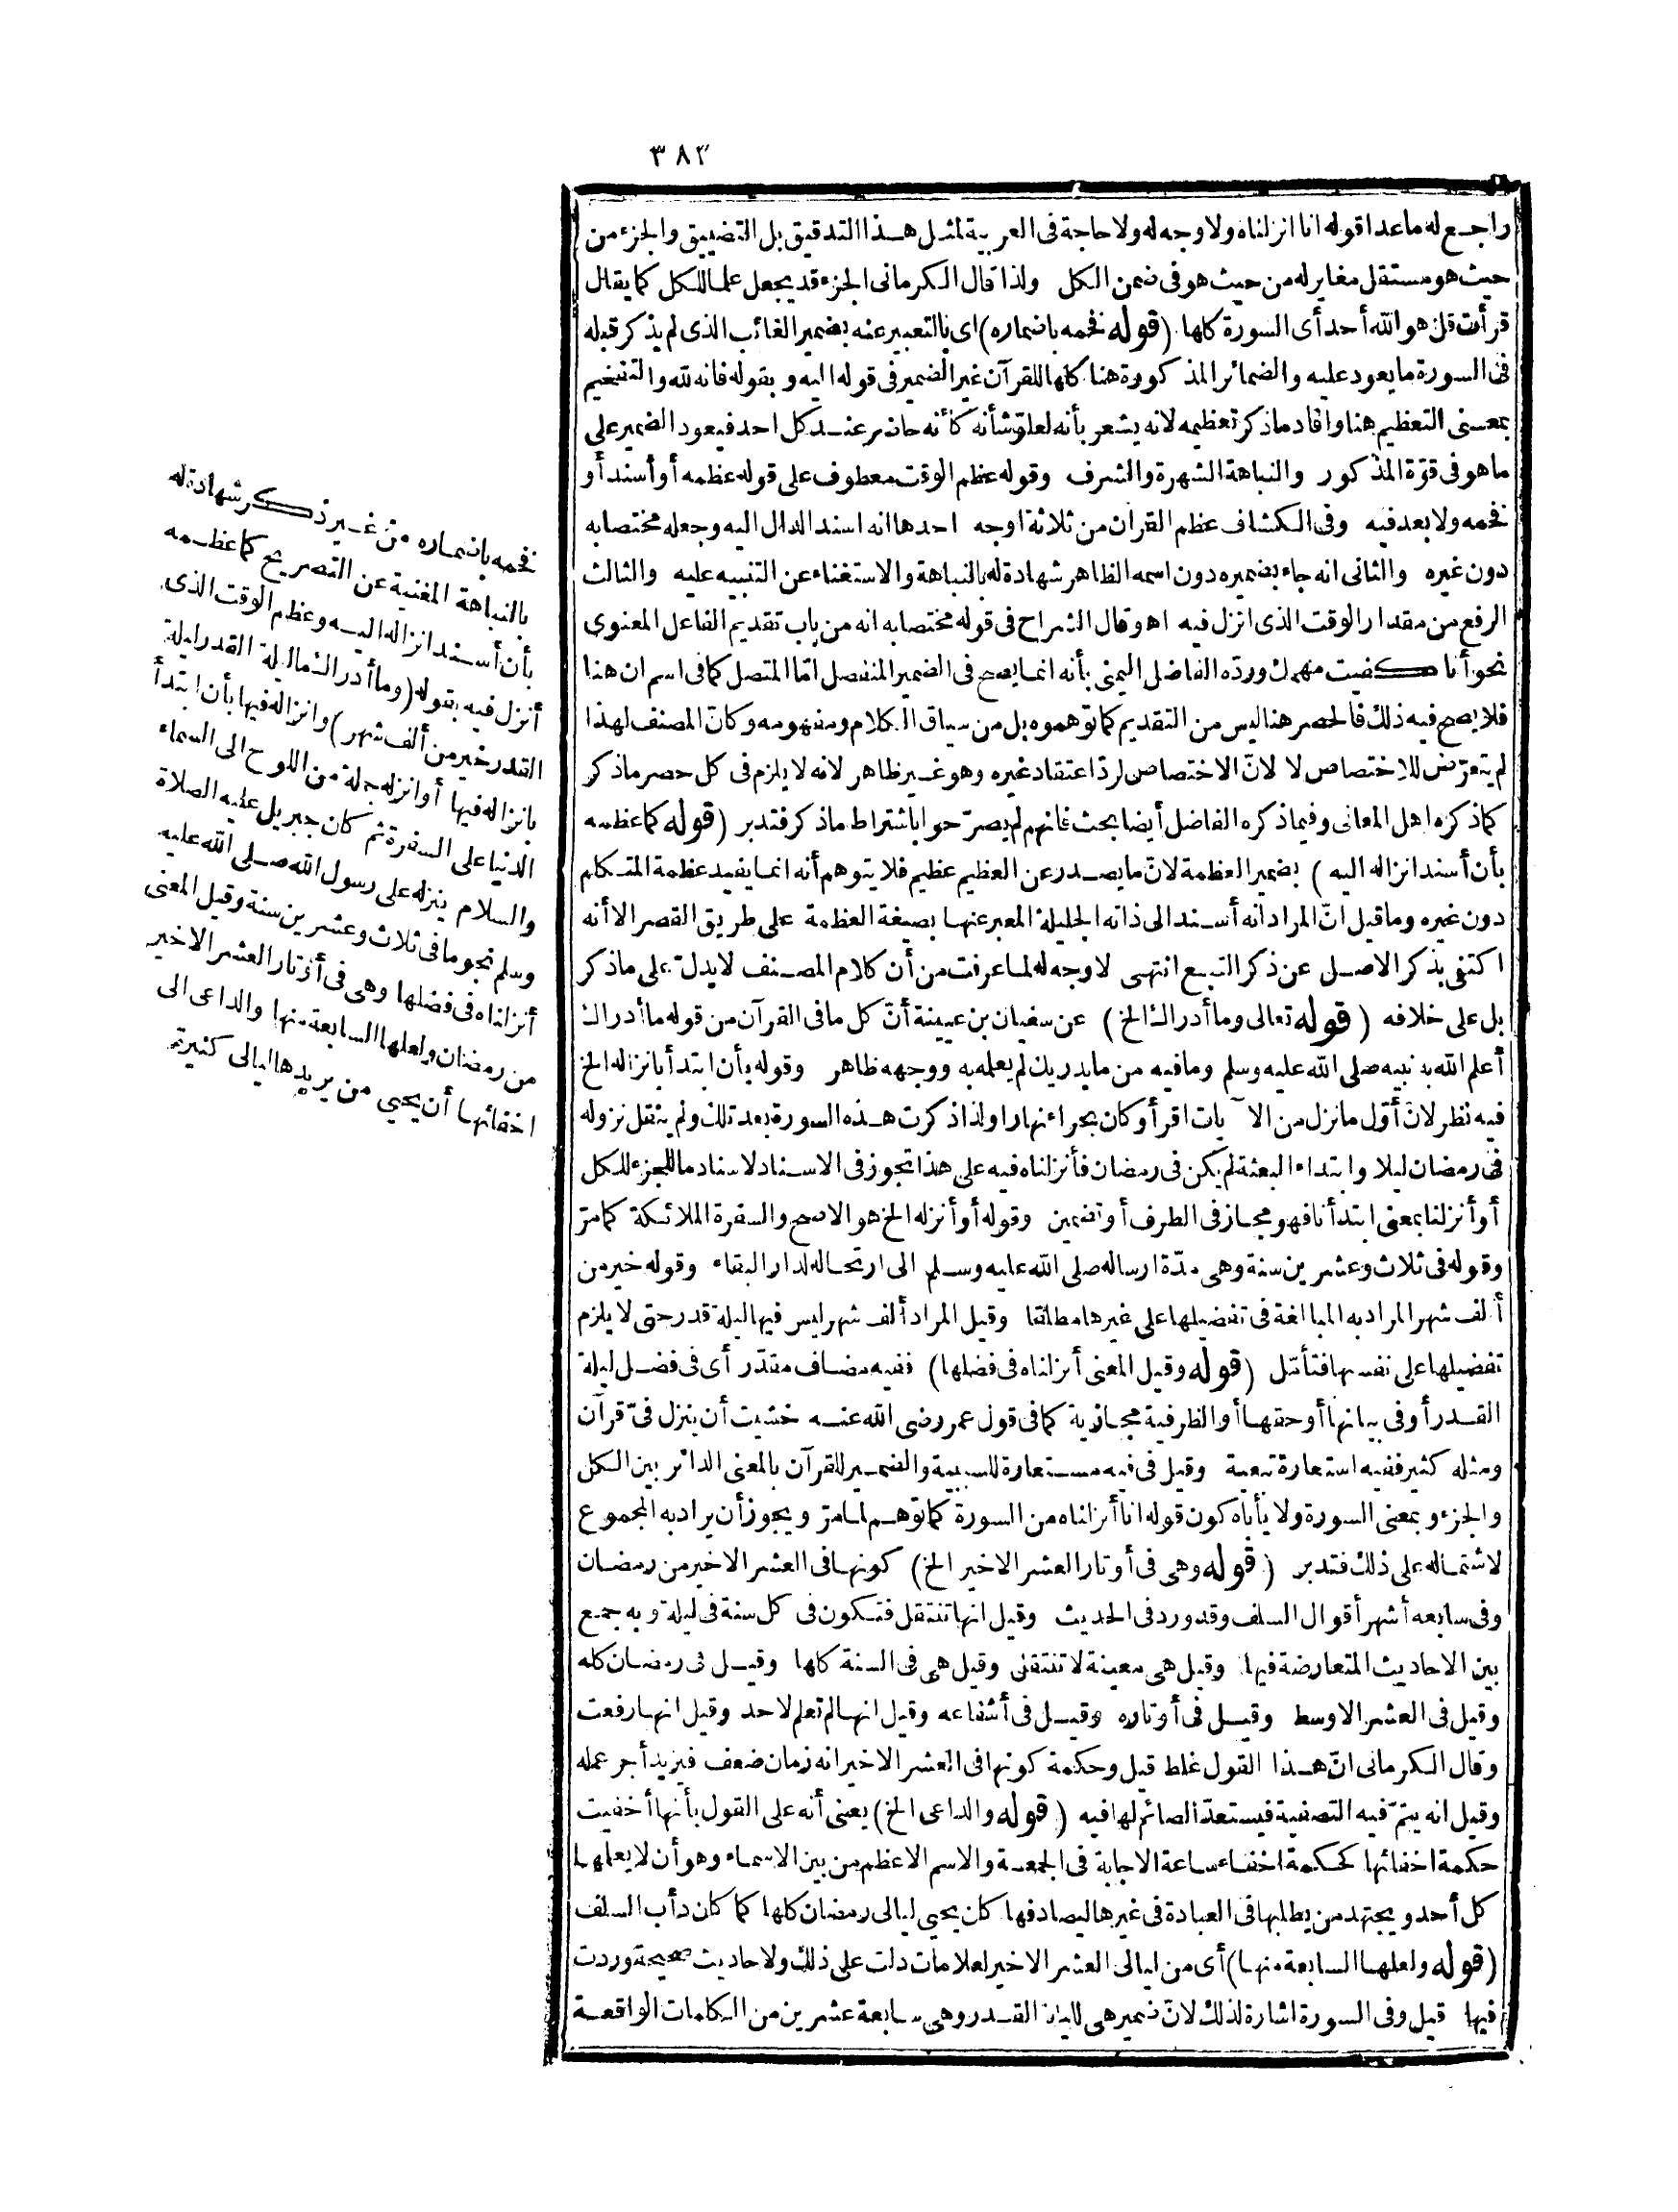 ٣٨٣
راجع له ماعدا قوله انا انزلناه ولا وجه له ولا حاجة فى العربية لمثل هذا التدقيق بل التضييق والجزء من
حيث هو مستقل مغاير له من حيث هو فى ضمن الكل ولذا قال الكرمانى الجزء قد يجعل علما للكل كما يقال
قرأت قل هو الله أحد أى السورة كلها (قوله فخمه باضماره) اى بالتعبير عنه بضمير الغائب الذى لم يذكر قبله
فى السورة ما يعود عليه والضمائر المذكورة هنا كلها للقرآن غير الضمير فى قوله اليه وبقوله فانه لله والتفخيم
بمعنى التعظيم هنا وافاد ماذكر تعظيمه لانه يشعر بأنه لعلوّ شأنه كأنه حاضر عند كل احد فيعود الضمير على
ما هو فى قوّة المذكور والنباهة الشهرة والشرف وقوله عظم الوقت معطوف على قوله عظمه أو أسند أو
فخمه ولا بعد فيه وفى الكشاف عظم القرآن من ثلاثة اوجه احدها انه اسند انزاله اليه وجعله مختصا به
دون غيره والثانى انه جاء بضميره دون اسمه الظاهر شهادة له بالنباهة والاستغناء عن التنبيه عليه والثالث
الرفع من مقدار الوقت الذى انزل فيه اه وقال الشراح فى قوله مختصا به انه من باب تقديم الفاعل المعنوى
نحو أنا كفيت مهمك وردّه الفاضل اليمنى بأنه انما يصح فى الضمير المنفصل امّا المتصل كما فى اسم ان هنا
فلا يصح فيه ذلك فالحصر هنا ليس من التقديم كما توهموه بل من سياق الكلام ومفهومه وكانّ المصنف لهذا
لم يتعرّض للاختصاص لا لانّ الاختصاص لردّ اعتقاد غيره وهو غير ظاهر لانه لا يلزم فى كل حصر ماذكر
كما ذكره اهل المعانى وفيما ذكره الفاضل أيضا بحث فانهم لم يصرّحوا باشتراط ماذكر فتدبر (قوله كما عظمه
بأن أسند انزاله اليه) بضمير العظمة لانّ ما يصدر عن العظيم عظيم فلا يتوهم أنه انما يفيد عظمة المتكلم
دون غيره وما قيل انّ المراد انه أسند الى ذاته الجليلة المعبر عنها بصيغة العظمة على طريق القصر الا أنه
اكتفى بذكر الاصل عن ذكر التبع انتهى لا وجه له لما عرفت من أن كلام المصنف لا يدل على ماذكر
بل على خلافه (قوله تعالى وما أدراك الخ) عن سفيان بن عيينة أنّ كل ما فى القرآن من قوله ما أدراك
أعلم الله به نبيه صلى الله عليه وسلم وما فيه من ما يدريك لم يعلمه به ووجهه ظاهر وقوله بأن ابتدأ بانزاله الخ
فيه نظر لانّ أوّل ما نزل من الآيات اقرأ وكان بحراء نهارا ولذا ذكرت هذه السورة بعد تلك ولم ينقل نزوله
فى رمضان ليلا وابتداء البعثة لم يكن فى رمضان فأنزلناه فيه على هذا تجوز فى الاسناد لاسناد ما للجزء للكل
أو أنزلنا بمعنى ابتدأنا فهو مجاز فى الطرف أو تضمين وقوله أو أنزله الخ هو الاصح والسفرة الملائكة كما مرّ
وقوله فى ثلاث وعشرين سنة وهى مدّة ارساله صلى الله عليه وسلم الى ارتحاله لدار البقاء وقوله خير من
ألف شهر المراد به المبالغة فى تفضيلها على غيرها مطلقا وقيل المراد ألف شهر ليس فيها ليلة قدر حتى لا يلزم
تفضيلها على نفسها فتأمّل (قوله وقيل المعنى أنزلناه فى فضلها) ففيه مضاف مقدّر أى فى فضل ليلة
القدر أو فى بيانها أو حقها أو الظرفية مجازية كما فى قول عمر رضى الله عنه خشيت أن ينزل فىّ قرآن
ومثله كثير ففيه استعارة تبعية وقيل فى فيه مستعارة للسببية والضمير للقرآن بالمعنى الدائر بين الكل
والجزء وبمعنى السورة ولا يأباه كون قوله انا أنزلناه من السورة كما توهم لما مرّ ويجوز أن يراد به المجموع
لاشتماله على ذلك فتدبر (قوله وهى فى أوتار العشر الاخير الخ) كونها فى العشر الاخير من رمضان
وفى سابعه أشهر أقوال السلف وقد ورد فى الحديث وقيل انها تنتقل فتكون فى كل سنة فى ليلة وبه جمع
بين الاحاديث المتعارضة فيها وقيل هى معينة لا تنتقل وقيل هى فى السنة كلها وقيل فى رمضان كله
وقيل فى العشر الاوسط وقيل فى أوتاره وقيل فى أشفاعه وقيل انها لم تعلم لاحد وقيل انها رفعت
وقال الكرمانى انّ هذا القول غلط قيل وحكمة كونها فى العشر الاخير انه زمان ضعف فيزيد أجر عمله
وقيل انه يتمّ فيه التصفية فيستعدّ الصائم لها فيه (قوله والداعى الخ) يعنى أنه على القول بأنها أخفيت
حكمة اخفائها كحكمة اخفاء ساعة الاجابة فى الجمعة والاسم الاعظم من بين الاسماء وهو أن لا يعلمها
كل أحد ويجتهد من يطلبها فى العبادة فى غيرها ليصادفها كان يحيى ليالى رمضان كلها كما كان دأب السلف
(قوله ولعلها السابعة منها) أى من ليالى العشر الاخير لعلامات دلت على ذلك ولاحاديث صحيحة وردت
فيها قيل وفى السورة اشارة لذلك لانّ ضمير هى لليلة القدر وهى سابعة عشرين من الكلمات الواقعة
فخمه باضماره من غير ذكر شهادة له
بالنباهة المغنية عن التصريح كما عظمه
بأن أسند انزاله اليه وعظم الوقت الذى
أنزل فيه بقوله (وما أدراك ما ليلة القدر ليلة
القدر خير من ألف شهر) وانزاله فيها بأن ابتدأ
بانزاله فيها أو انزله جملة من اللوح الى السماء
الدنيا على السفرة ثم كان جبريل عليه الصلاة
والسلام ينزله على رسول الله صلى الله عليه
وسلم نجوما فى ثلاث وعشرين سنة وقيل المعنى
أنزلناه فى فضلها وهى فى أوتار العشر الاخير
من رمضان ولعلها السابعة منها والداعى الى
اخفائها أن يحيى من يريدها ليالى كثيرة